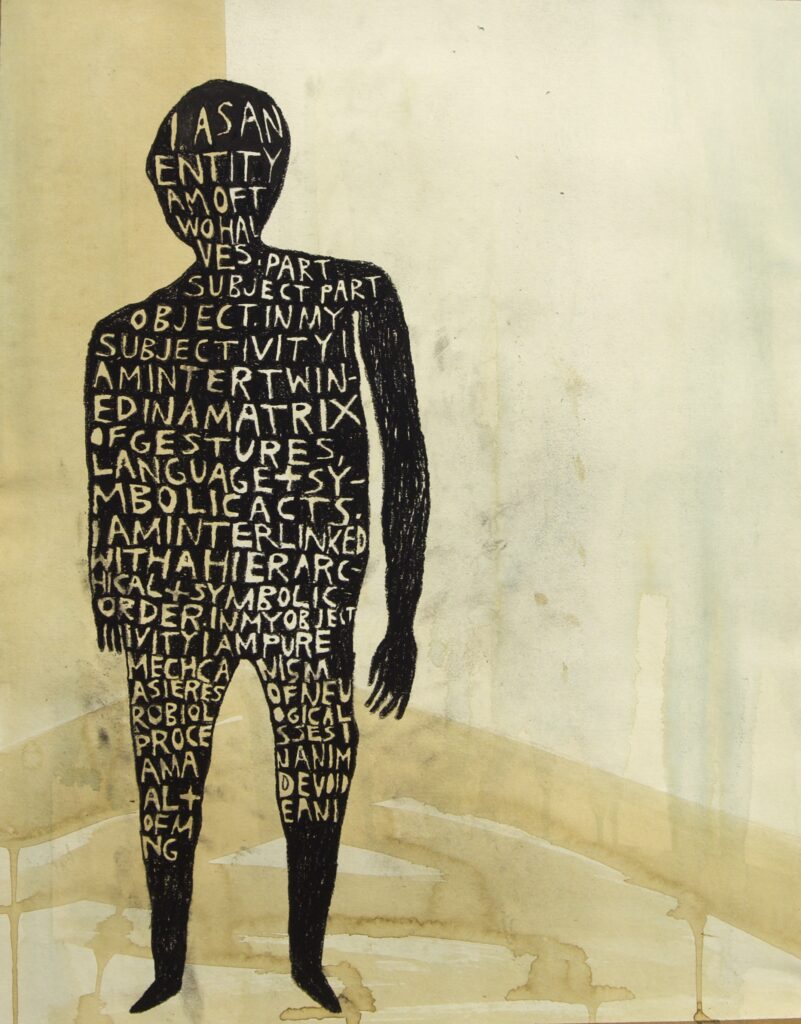 I AS AN
ENTITY
AM OF T
WO HAL
VES. PART
SUBJECT PART
OBJECT. IN MY
SUBJECTIVITY I
AM INTERTWIN-
ED IN A MATRIX
OF GESTURES,
LANGUAGE + SY-
MBOLIC ACTS.
I AM INTERLINKED
WITH A HIERARC-
HICAL + SYMBOLIC
ORDER. IN MY OBJECT
IVITY I AM PURE
MECHCA NISM
A SIERES OF NEU
ROBIOL OGICAL
PROCE SSES I
AM A N ANIM
AL + DEVOID
OF M EANI
NG